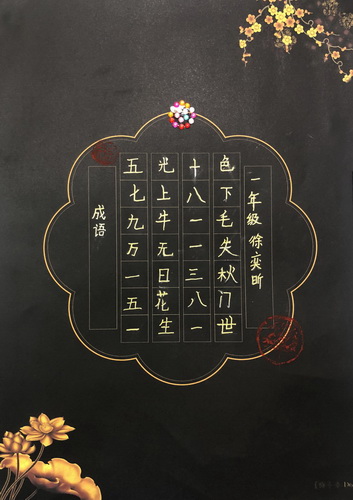 成语
五光十色
七上八下
九牛一毛
万无一失
一日三秋
五花八门
一生一世
一年级 徐奕昕